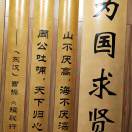 为国求贤
山不厌高，海不厌深
周公吐哺，天下归心